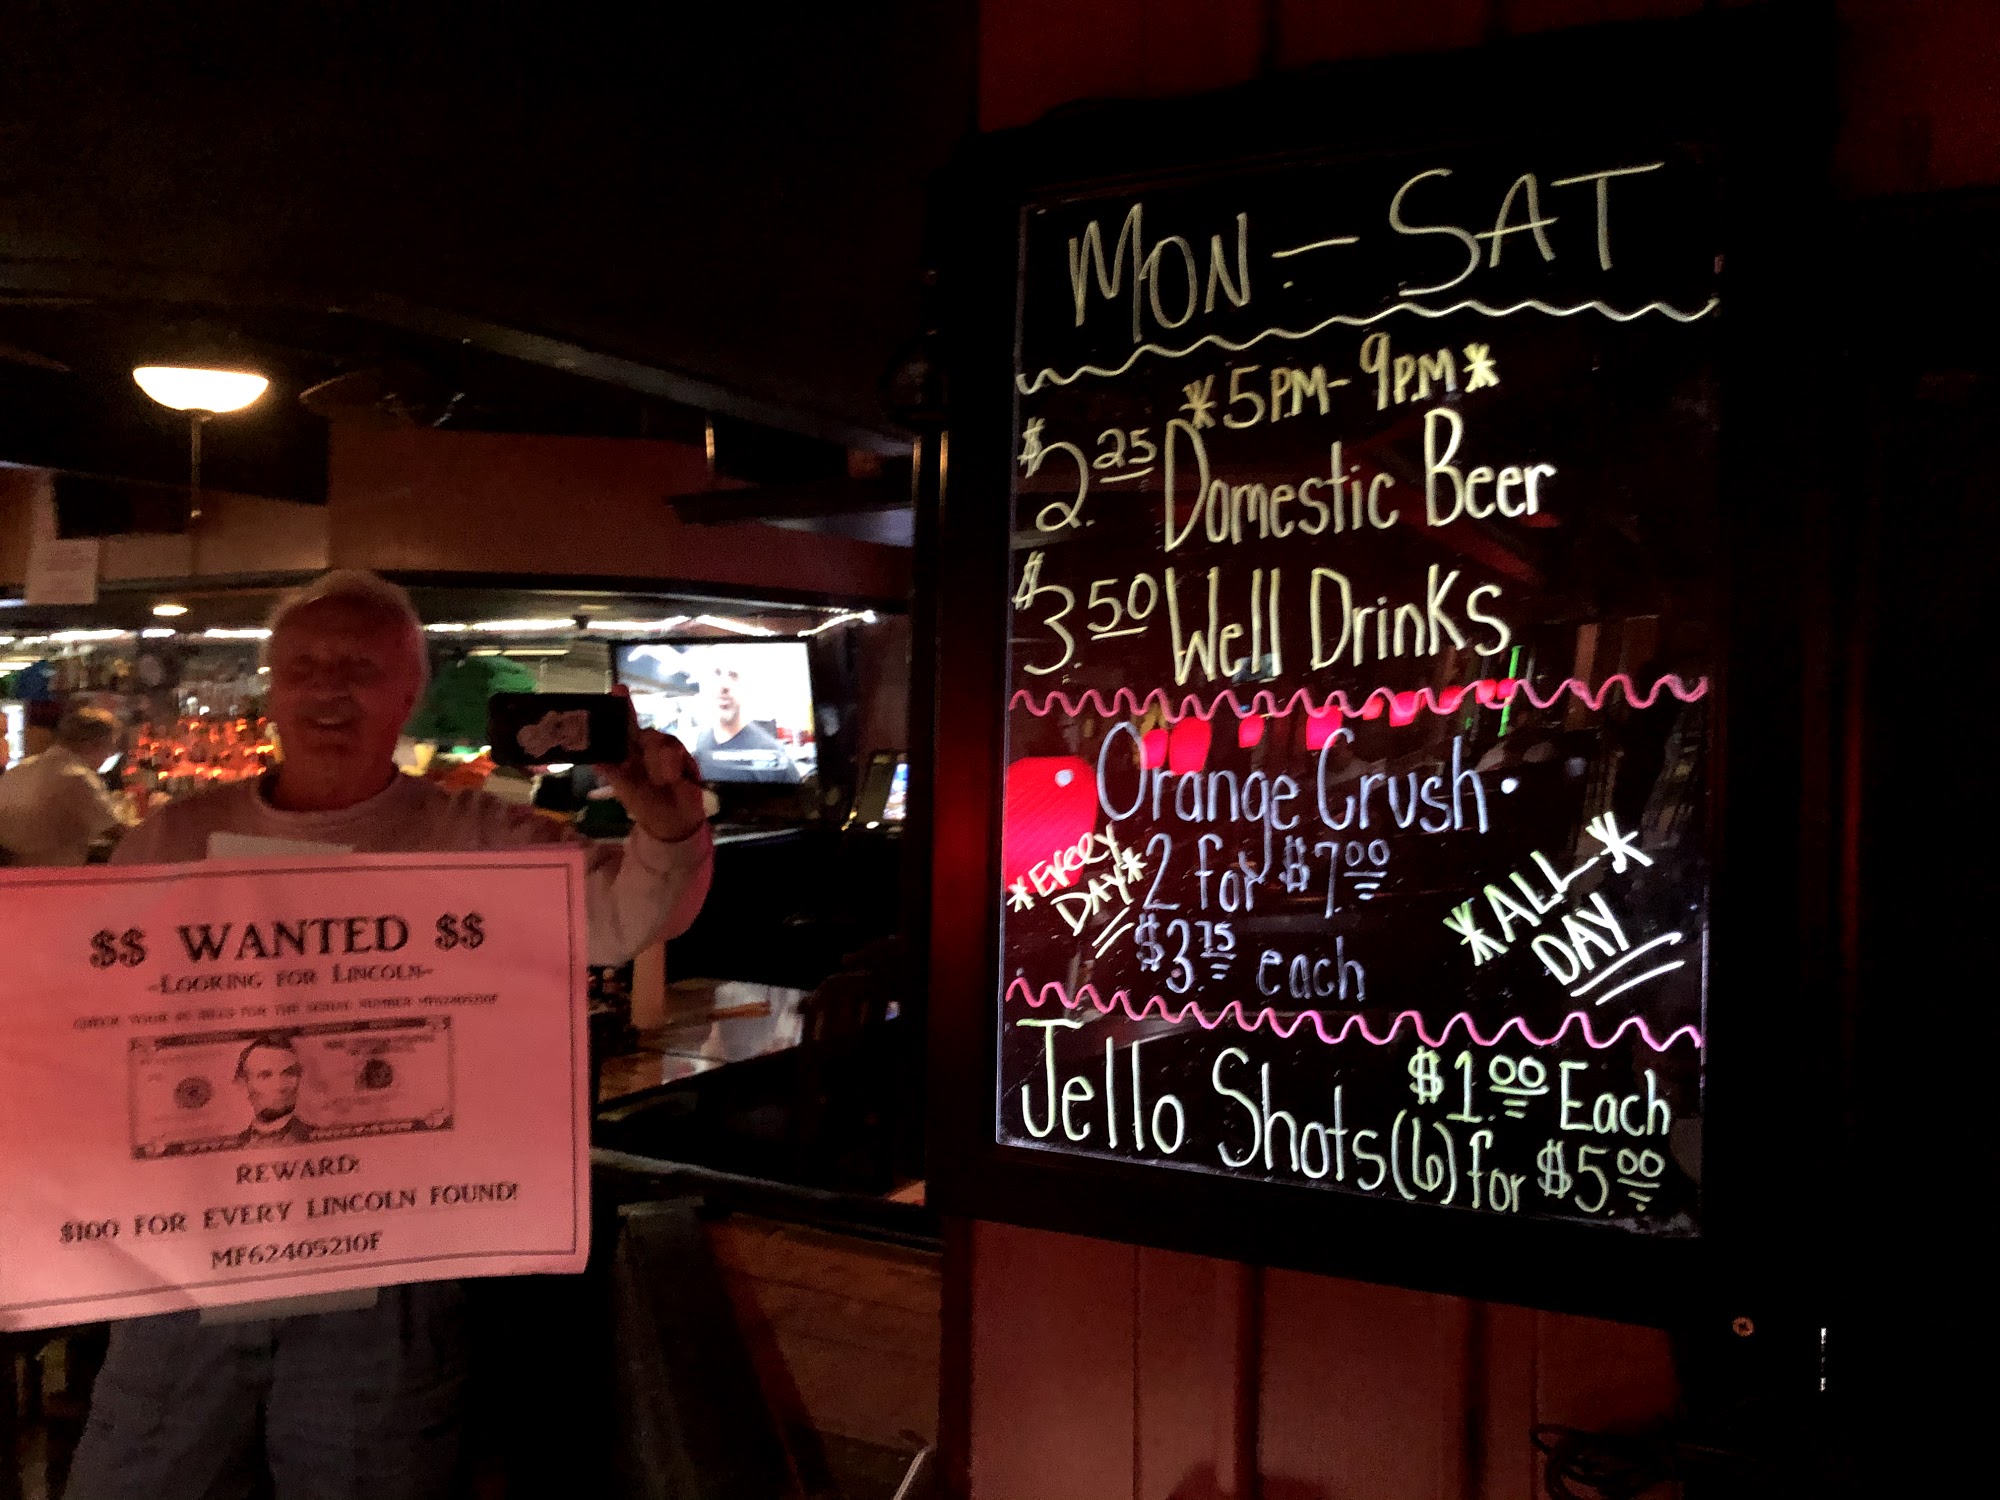 $$ WANTED $$
-LOOKING FOR LINCOLN-
CHECK YOUR $5 BILLS FOR THE SERIAL NUMBER MF62405210F
REWARD:
$100 FOR EVERY LINCOLN FOUND!
MF62405210F
MON - SAT
*5PM - 9PM*
$2.25 Domestic Beer
$3.50 Well Drinks
Orange Crush
*EVERY DAY*
2 for $7.00
$3.75 each
*ALL-*
DAY
Jello Shots
$1.00 Each
(6) for $5.00